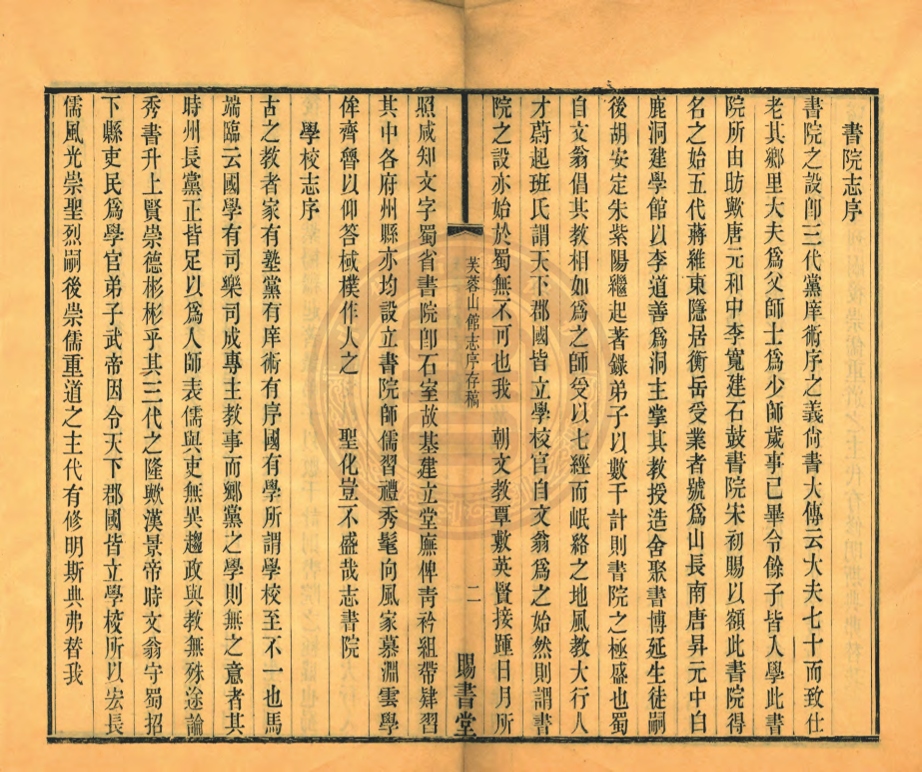 書院志序
書院之設卽三代黨庠術序之義尙書大傳云大夫七十而致仕
老其鄕里大夫爲父師士爲少師歲事已畢令餘子皆入學此書
院所由昉歟唐元和中李寬建石鼓書院宋初賜以額此書院得
名之始五代蔣維東隱居衡岳受業者號爲山長南唐昇元中白
鹿洞建學館以李道善爲洞主掌其教授造舍聚書博延生徒嗣
後胡安定朱紫陽繼起著錄弟子以數千計則書院之極盛也蜀
自文翁倡其教相如爲之師受以七經而岷絡之地風教大行人
才蔚起班氏謂天下郡國皆立學校官自文翁爲之始然則謂書
院之設亦始於蜀無不可也我　朝文教覃敷英賢接踵日月所
芙蓉山館志序存稿
二
賜書堂
照咸知文字蜀省書院卽石室故基建立堂廡俾靑衿組帶肄習
其中各府州縣亦均設立書院師儒習禮秀髦向風家慕淵雲學
侔齊魯以仰答棫樸作人之　聖化豈不盛哉志書院
學校志序
古之教者家有塾黨有庠術有序國有學所謂學校至不一也馬
端臨云國學有司樂司成專主教事而鄕黨之學則無之意者其
時州長黨正皆足以爲人師表儒與吏無異趨政與教無殊途論
秀書升上賢崇德彬彬乎其三代之隆歟漢景帝時文翁守蜀招
下縣吏民爲學官弟子武帝因令天下郡國皆立學校所以宏長
儒風光崇聖烈嗣後崇儒重道之主代有修明斯典弗替我